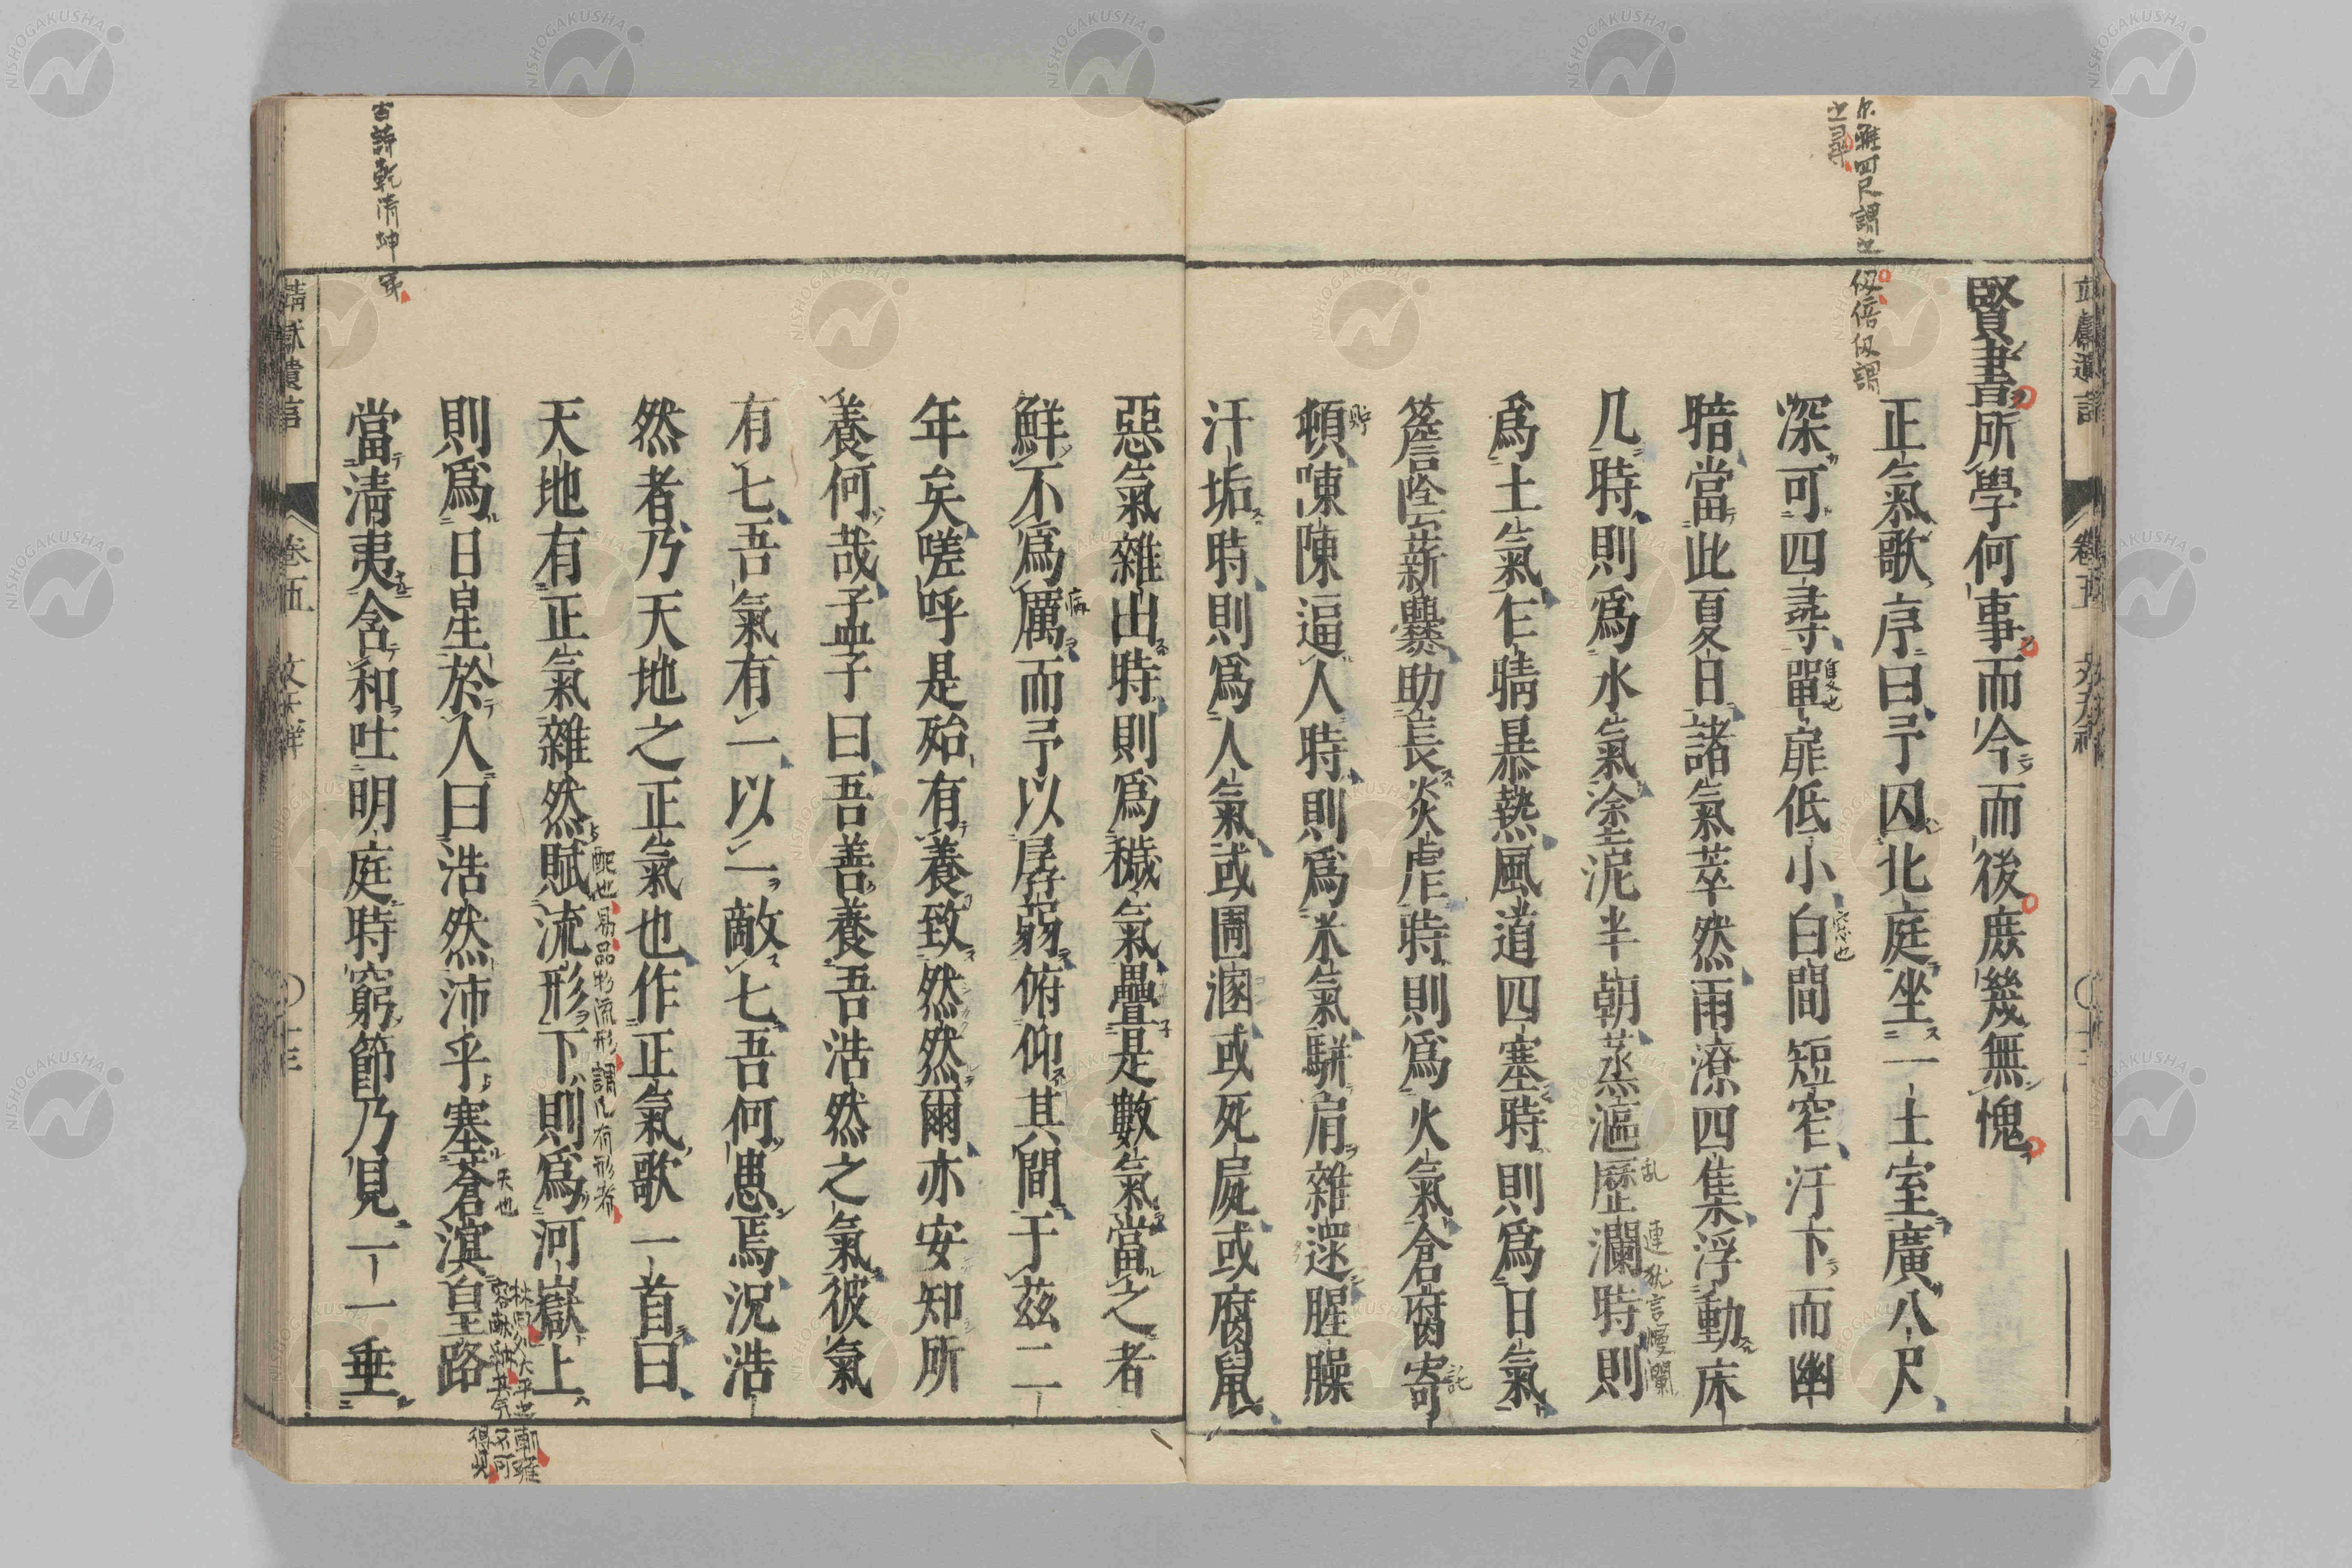 賢書所學何事而今而後庶幾無愧
正氣歌序曰予囚北庭坐一土室廣八尺
深可四尋單扉低小白間短窄汙下而幽
暗當此夏日諸氣萃然雨潦四集浮動床
几時則爲水氣塗泥半朝蒸漚歷瀾時則
爲土氣乍晴暴熱風道四塞時則爲日氣
簷陰薪爨助長炎虐時則爲火氣倉腐寄
頓陳陳逼人時則爲米氣駢肩雜遝腥臊
汙垢時則爲人氣或圊溷或死屍或腐鼠
惡氣雜出時則爲穢氣疊是數氣當之者
鮮不爲厲而予以孱弱俯仰其間于茲二
年矣嗟呼是殆有養致然然爾亦安知所
養何哉孟子曰吾善養吾浩然之氣彼氣
有七吾氣有一以一敵七吾何患焉況浩
然者乃天地之正氣也作正氣歌一首曰
天地有正氣雜然賦流形下則爲河嶽上
則爲日星於人曰浩然沛乎塞蒼溟皇路
當淸夷含和吐明庭時窮節乃見一一垂
尔雅四尺謂之仞倍仞謂
之尋
隻也
窓也
乱
連
言
瀾
託
貯
病
配也易品物流形謂凡有形者
天也
得見
古詩乾淸坤
靖獻遺言
卷五
卷五